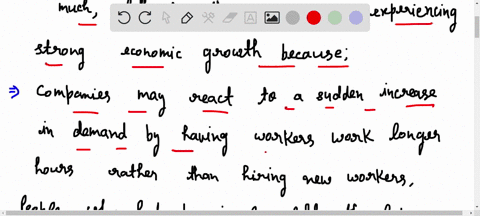 much, experiencing
strong economic growth because;
⇒ Companies may react to a sudden increase
in demand by having workers work longer
hours rather than hiring new workers,